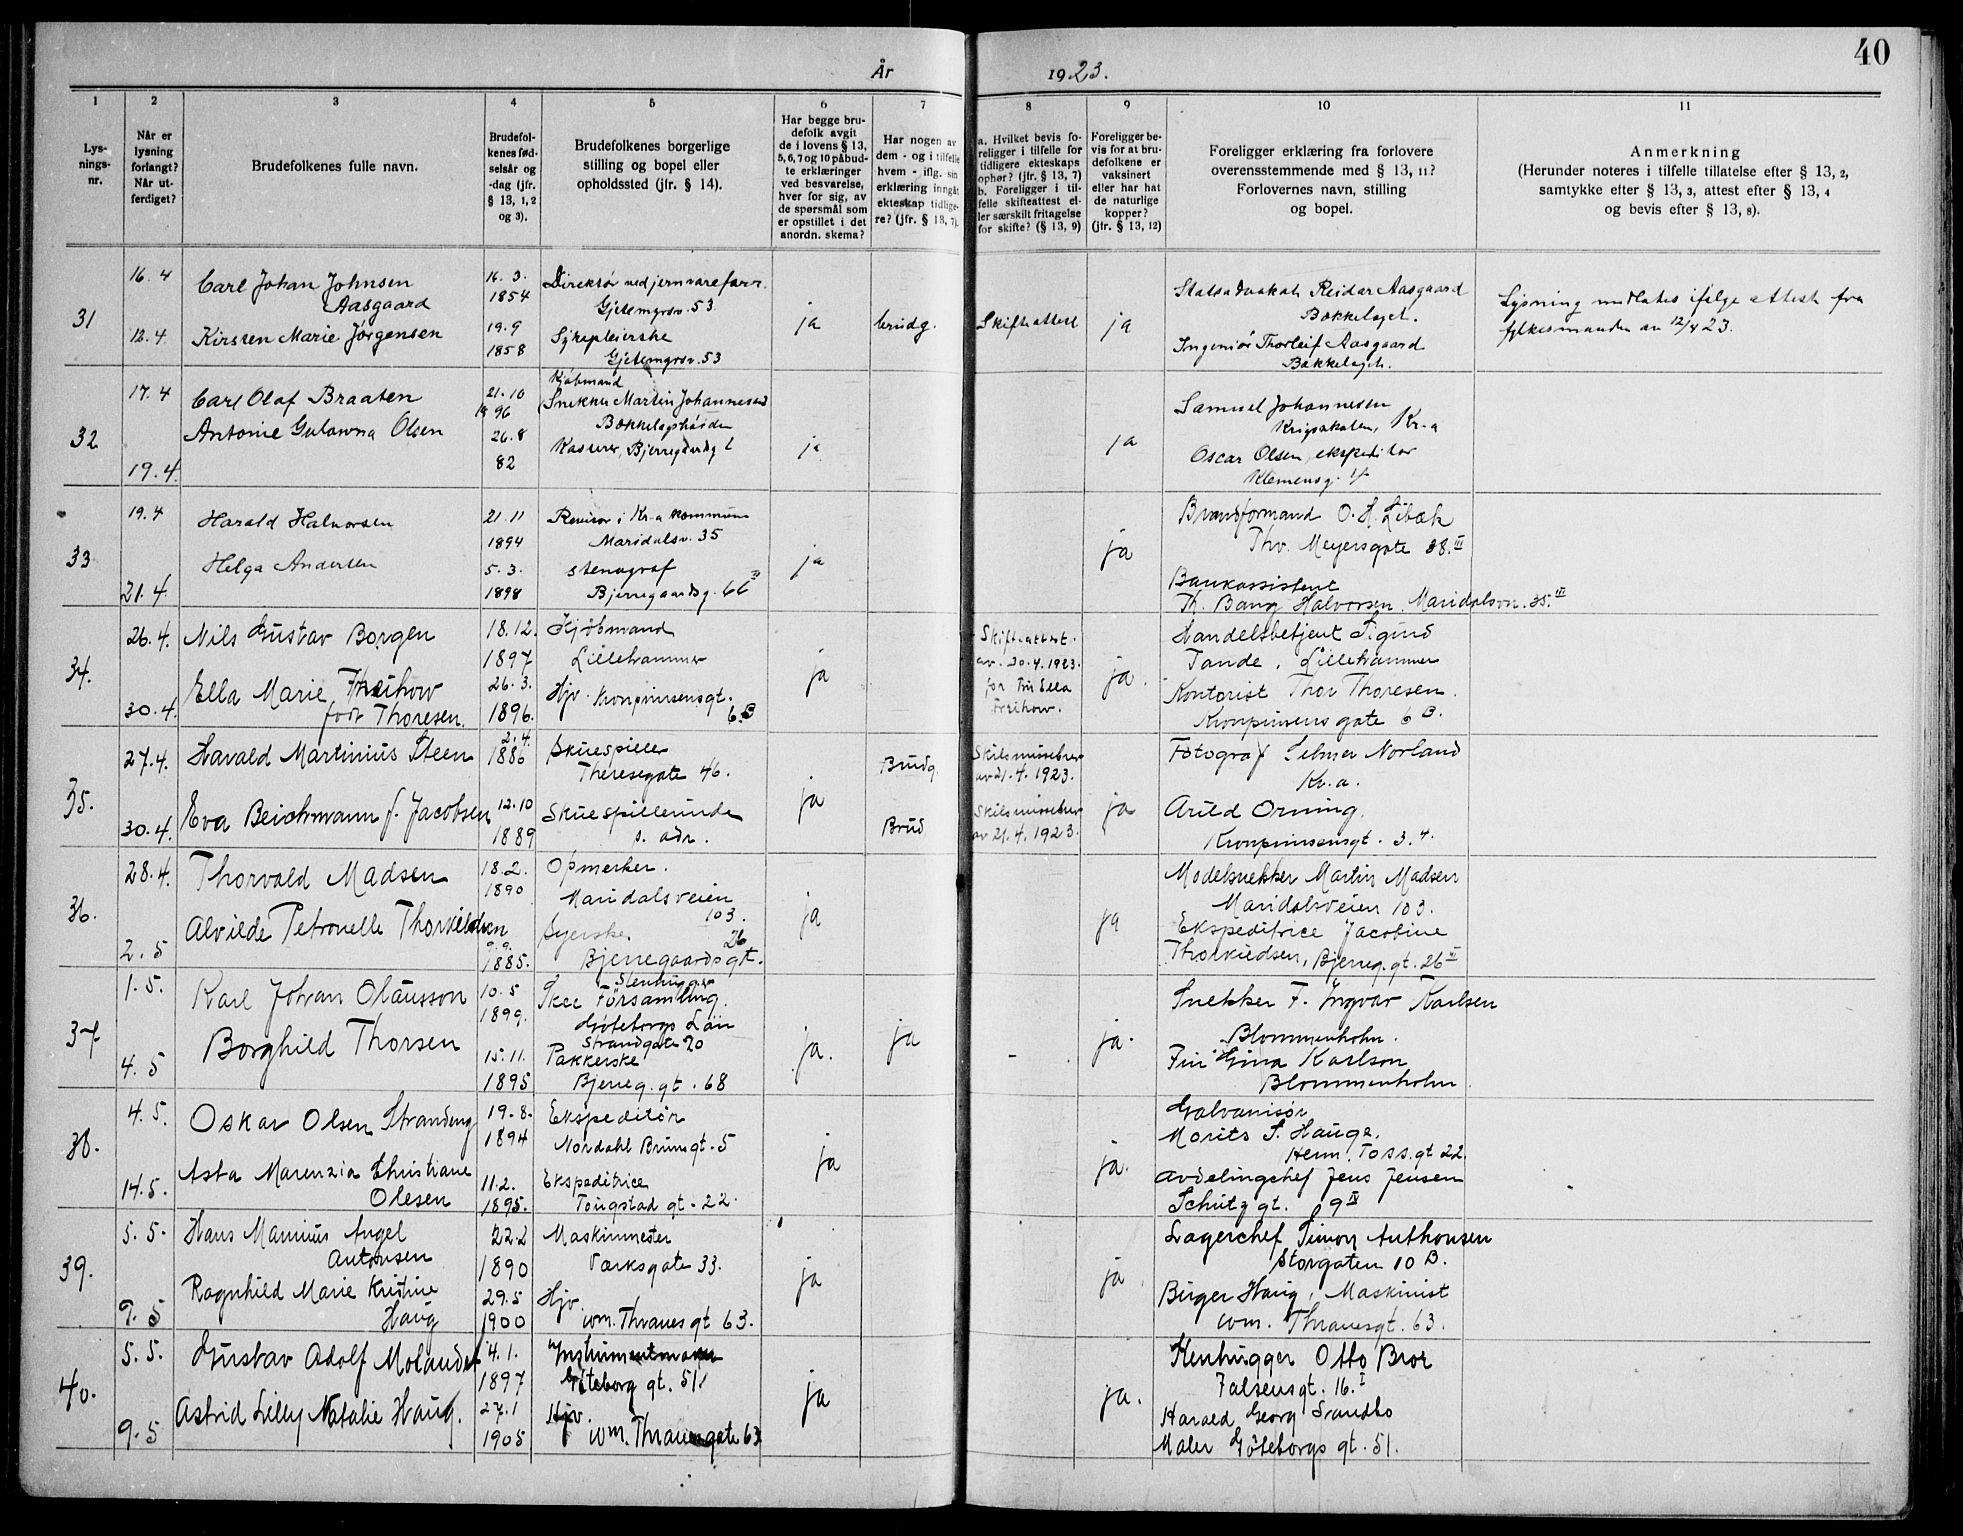 40
År 1923.
1 2 3 4 5 6 7 8 9 10 11
Lys-
nings-
nr.
Når er
lysning
forlangt?
Når ut-
ferdiget?
Brudefolkenes fulle navn.
Brudefol-
kenes fød-
selsår og
-dag (jfr.
§ 13, 1, 2
og 3).
Brudefolkenes borgerlige
stilling og bopel eller
opholdssted (jfr. § 14).
Har begge bru-
defolk avgit
de i lovens § 13,
5, 6, 7 og 10 påbud-
te erklæringer
ved besvarelse,
hver for sig, av
de spørsmål som
er opstillet i det
anordn. skema?
Har nogen av
dem - og i tilfelle
hvem - iflg. sin
erklæring inngåt
ekteskap tidlige-
re? (jfr. § 13, 7).
a. Hvilket bevis fo-
religger i tilfelle for
tidligere ekteskaps
ophør? (jfr. § 13, 7)
b. Foreligger i til-
felle skifteattest el-
ler særskilt fritagelse
for skifte? (§ 13, 9)
Foreligger be-
vis for at bru-
defolkene er
vaksinert
eller har hat
de naturlige
kopper?
(jfr. § 13, 12)
Foreligger erklæring fra forlovere
overensstemmende med § 13, 11?
Forlovernes navn, stilling
og bopel.
Anmerkning
(Herunder noteres i tilfelle tillatelse efter § 13, 2,
samtykke efter § 13, 3, attest efter § 13, 4
og bevis efter § 13, 8).
31
16.4
12.4
Carl Johan Johnsen
Aasgaard
Kirsten Marie Jørgensen
16.3.
1854
19.9
1858
Direktør ved jernvareforr.
Gjetemyrsv. 53
Sykepleierske
Gjetemyrsv. 53
ja
brudg.
Skifteattest
ja
Statsadvokat Reidar Aasgaard
Bækkelaget.
Ingeniør Thorleif Aasgaard
Bækkelaget.
Lysning medlates ifølge attest fra
fylkesmanden av 12/4 23.
32
17.4
19.4.
Carl Olaf Braaten
Antonie Gulowna Olsen
21.10
1896
26.8
82
Kjøbmand
Snekker Martin Johannesen
Bækkelagshøiden
Kasserer, Bjerregårdsg
ja
ja
Samuel Johannesen
Krigsskolen, Kr.a
Oscar Olsen, ekspeditør
Klemensg.
33
19.4
21.4.
Harald Halvorsen
Helga Andersen
21.11
1894
5.3.
1898
Revisor i Kr.a kommune
Maridalsv. 35
stenograf
Bjerregaardsg. 66 III
ja
ja
Brandformand O. H. Libæk
Thv. Meyersgate 38. III
Bankassistent
Th. Bang Halvorsen, Maridalsvn. 35. III
34.
26.4.
30.4.
Nils Gustav Borgen
Ella Marie Freihow
født Thoresen.
18.12.
1897
26.3.
1896.
Kjøbmand
Lillehammer
Hjv. Kronprinsensgt.
6.B
ja
Skifteattest
av 20.4.1923.
for Fru Ella
Freihow.
ja.
Handelsbetjent Sigurd
Tande, Lillehammer
Kontorist Thor Thoresen.
Kronprinsens gate 6 B.
35.
27.4.
30.4.
Harald Martinius Steen
Eva Beichmann f. Jacobsen
2.4.
1886
12.10
1889
Skuespiller
Theresegate 46.
Skuespillerinde
s. adr.
ja
Brudg.
Brud
Skilsmissebev
av 21.4.1923.
Skilsmissebev
av 21.4.1923.
ja
Fotograf Selmer Norland
Kr.a.
Arild Orning.
Kronprinsensgt. 3.4.
36.
28.4.
2.5
Thorvald Madsen
Alvilde Petronelle Thorkildsen
18.2.
1890
9.9.
1885.
Opmerker.
Maridalsveien
103.
Syerske. 26
Bjerregaardsgt.
ja
ja
Modelsnekker Martin Madsen
Maridalsveien 103.
Ekspeditrice Jacobine
Thorkildsen, Bjerreg.gt. 26 IV
37
1.5.
4.5
Karl Johan Olausson
Borghild Thorsen
10.5
1899.
15.11.
1895
Stenhugger
Skee Församling.
Göteborgs Län
Strandgate 20
Pakkerske
Bjerreg.gt. 68
ja.
ja
-
ja.
Snekker F. Ingvar Karlsen
Blommenholm.
Fru Gina Karlson
Blommenholm.
38.
4.5.
14.5.
Oskar Olsen Strandeng
Asta Marenzia Christiane
Olesen
19.8.
1894
11.2.
1895.
Ekspeditør
Nordahl Brunsgt. 5
Ekspeditrice
Tougstad gt. 22.
ja
ja.
Galvanisør
Morits S. Hauge,
Herm. Foss.gt 22.
Avdelingschef Jens Jensen
Schutz gt. 9 IV
39.
5.5.
9.5
Hans Marinius Angel
Antonsen
Ragnhild Marie Kristine
Haug
22.2
1890
29.5
1900
Maskinmester
Værksgate 33.
Hjv.
Wm. Thranes gt 63.
ja
ja
Lagerchef Simon Anthonsen
Storgaten 10 B.
Birger Haug, Maskinist
Wm. Thranesgt. 63.
40.
5.5.
9.5
Gustav Adolf Molander
Astrid Lilly Natalie Haug.
4.1.
1897
27.1
1905
Instrumentmaker
Göteborg gt. 51.
Hjv.
Wm. Thranesgate 63
ja
ja.
Stenhugger Otto Bror
Falsensgt. 16. I
Harald Georg Sandbo
Maler Göteborgs gt. 51.